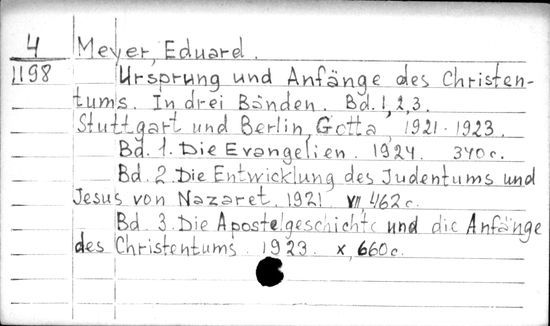 4 Meyer, Eduard.
1198 Ursprung und Anfänge des Christen-
tums. In drei Bänden. Bd. 1, 2, 3.
Stuttgart und Berlin, Gotta, 1921-1923.
Bd. 1. Die Evangelien. 1924. 340c.
Bd. 2. Die Entwicklung des Judentums und
Jesus von Nazaret. 1921. VII 462c.
Bd. 3. Die Apostelgeschichte und die Anfänge
des Christentums. 1923. X, 660c.